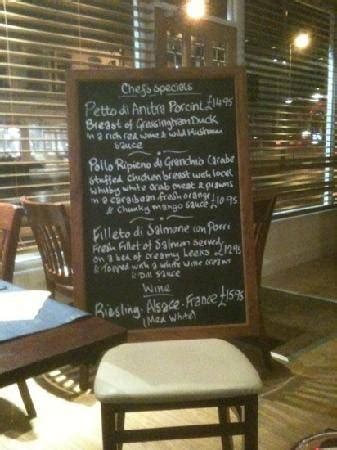 Chefs specials
Petto di Anitra Porcini £14.95
Breast of Gressingham Duck
in a rich red wine & wild Mushroom
sauce
Pollo Ripieno di Granchio Carabe
stuffed chicken breast with local
Whitby white crab meat & prawns
in a caraibean fresh orange
& Chunky mango sauce £10.95
Filleto di Salmone con Porri
Fresh Fillet of Salmon Served
on a bed of creamy Leeks £12.95
& topped with a white wine cream
& Dill Sauce
Wine
Riesling. Alsace. France £15.95
(Med White)